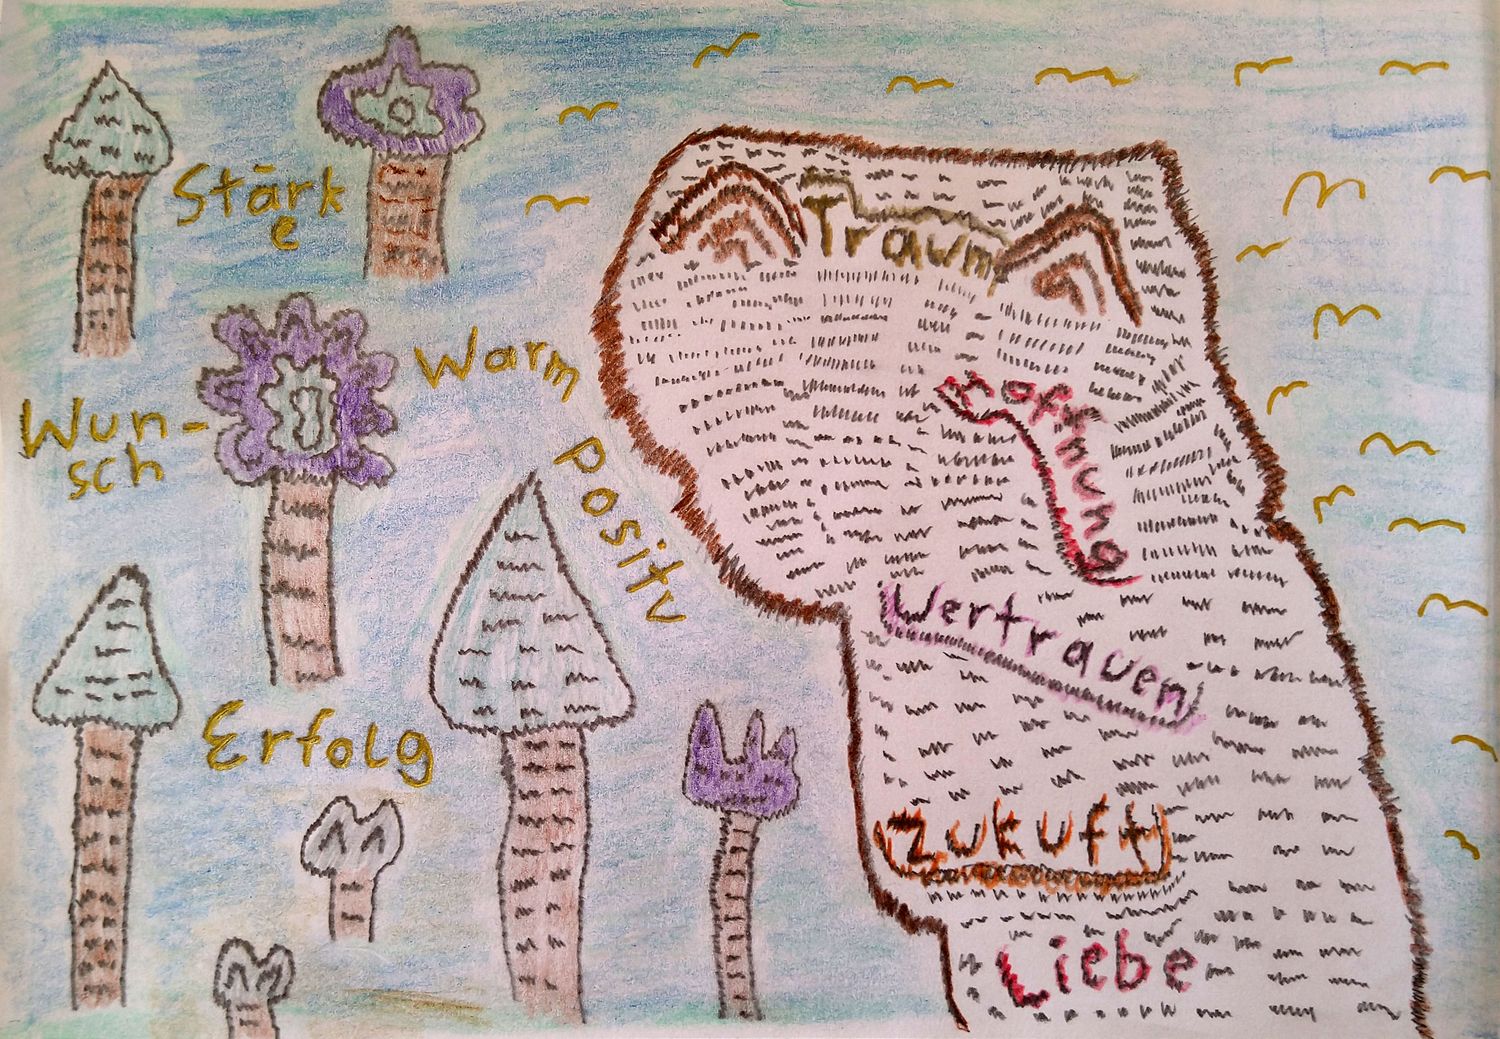 Stärk
e
Wun-
sch
Warm
positiv
Erfolg
Traum
Hoffnung
Vertrauen
Zukuft
Liebe